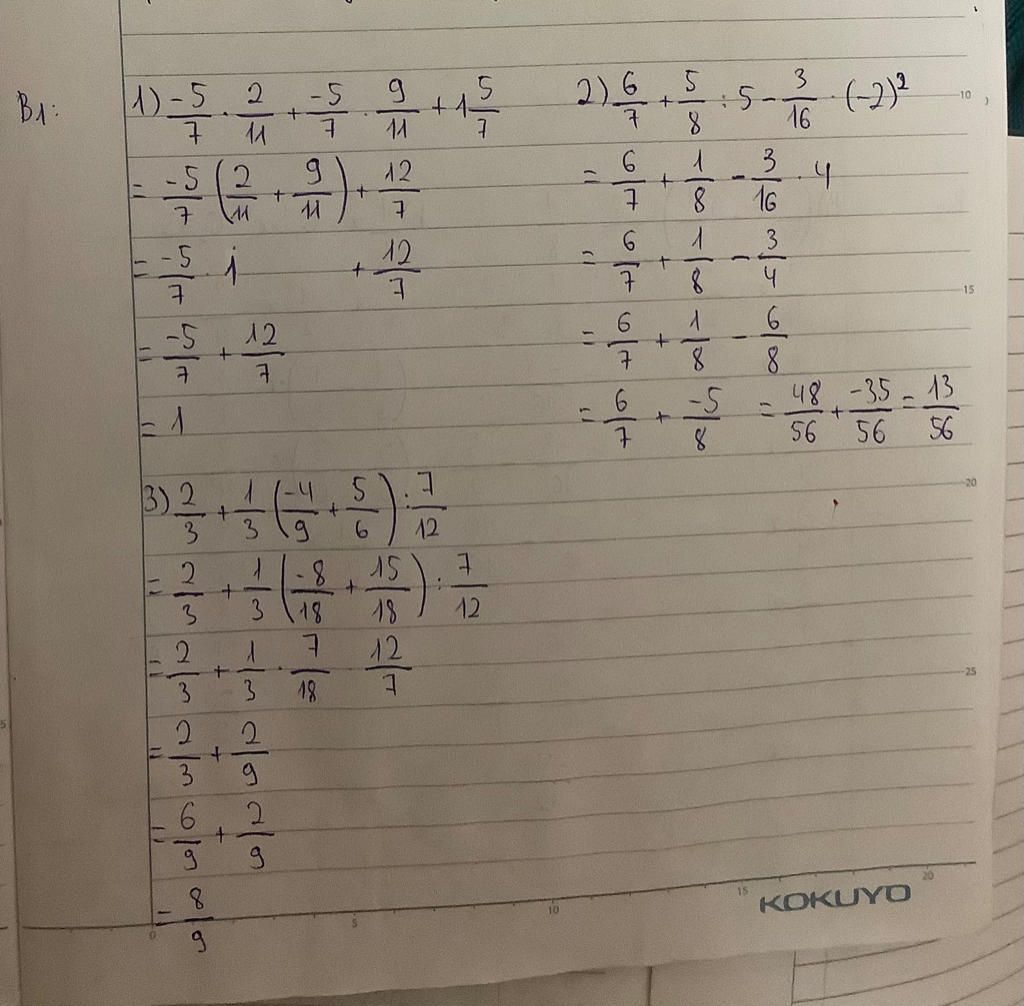 B1:
1) -5/7 · 2/11 + -5/7 · 9/11 + 1 5/7
= -5/7 (2/11 + 9/11) + 12/7
= -5/7 · 1 + 12/7
= -5/7 + 12/7
= 1
2) 6/7 + 5/8 : 5 - 3/16 · (-2)²
= 6/7 + 1/8 - 3/16 · 4
= 6/7 + 1/8 - 3/4
= 6/7 + 1/8 - 6/8
= 6/7 + -5/8 = 48/56 + -35/56 = 13/56
3) 2/3 + 1/3 (-4/9 + 5/6) : 7/12
= 2/3 + 1/3 (-8/18 + 15/18) : 7/12
= 2/3 + 1/3 · 7/18 12/7
= 2/3 + 2/9
= 6/9 + 2/9
= 8/9
10
15
20
25
0 5 10 15 20
KOKUYO